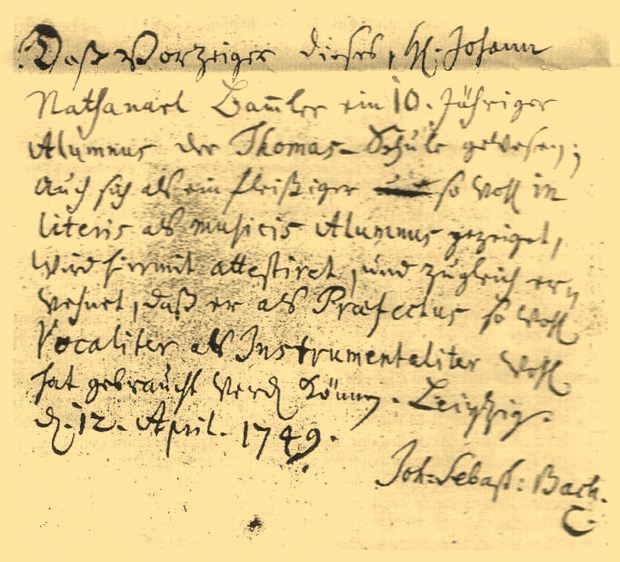 Daß Vorzeiger dieses, H. Johann
Nathanael Bam̄ler ein 10. Jähriger
Alumnus der Thomas-Schule gewesen,
Auch sich als ein fleißiger so wohl in
literis als musicis Alumnus gezeiget,
Wird hiermit attestiret, und zugleich er-
wehnet, daß er als Præfectus so wohl
Vocaliter als Instrumentaliter wohl
hat gebraucht werd können. Leipzig.
d. 12. April. 1749.
Joh: Sebast: Bach.